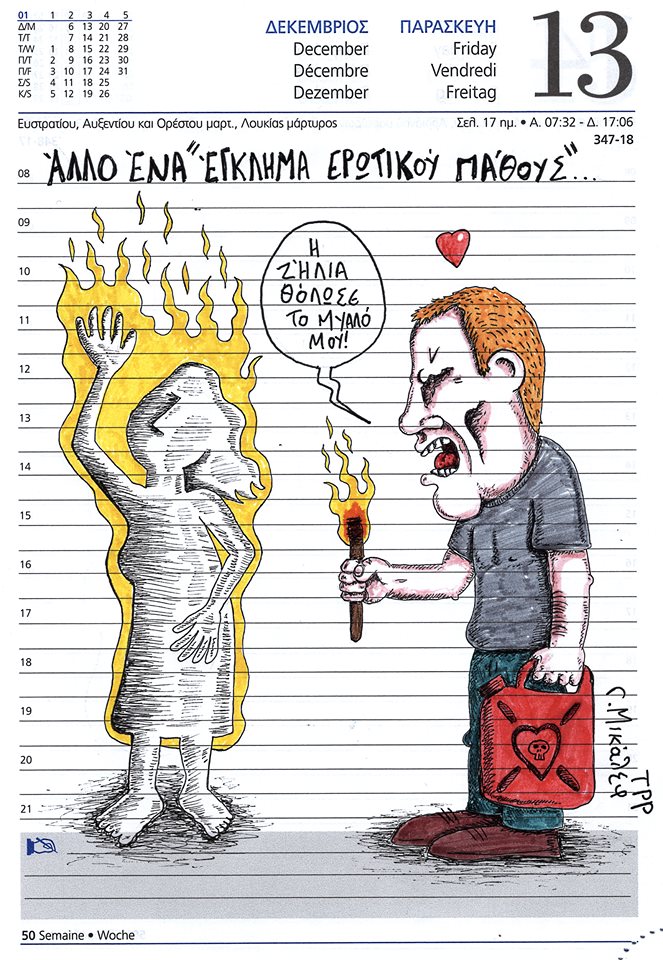 01 1 2 3 4 5
Δ/M 6 13 20 27
T/T 7 14 21 28
T/W 1 8 15 22 29
Π/T 2 9 16 23 30
Π/F 3 10 17 24 31
Σ/S 4 11 18 25
K/S 5 12 19 26
ΔΕΚΕΜΒΡΙΟΣ ΠΑΡΑΣΚΕΥΗ
December Friday
Décembre Vendredi
Dezember Freitag
13
Ευστρατίου, Αυξεντίου και Ορέστου μαρτ., Λουκίας μάρτυρος
Σελ. 17 ημ. • Α. 07:32 - Δ. 17:06
347-18
08
ΆΛΛΟ ΈΝΑ "ΈΓΚΛΗΜΑ ΕΡΩΤΙΚΟΎ ΠΆΘΟΥΣ"...
09
10
11
12
13
14
15
16
17
18
19
20
21
Η
ΖΉΛΙΑ
ΘΌΛΩΣΕ
ΤΟ ΜΥΑΛΌ
ΜΟΥ!
Γ. ΜΙΚΆΛΕΦ
TPP
50 Semaine • Woche